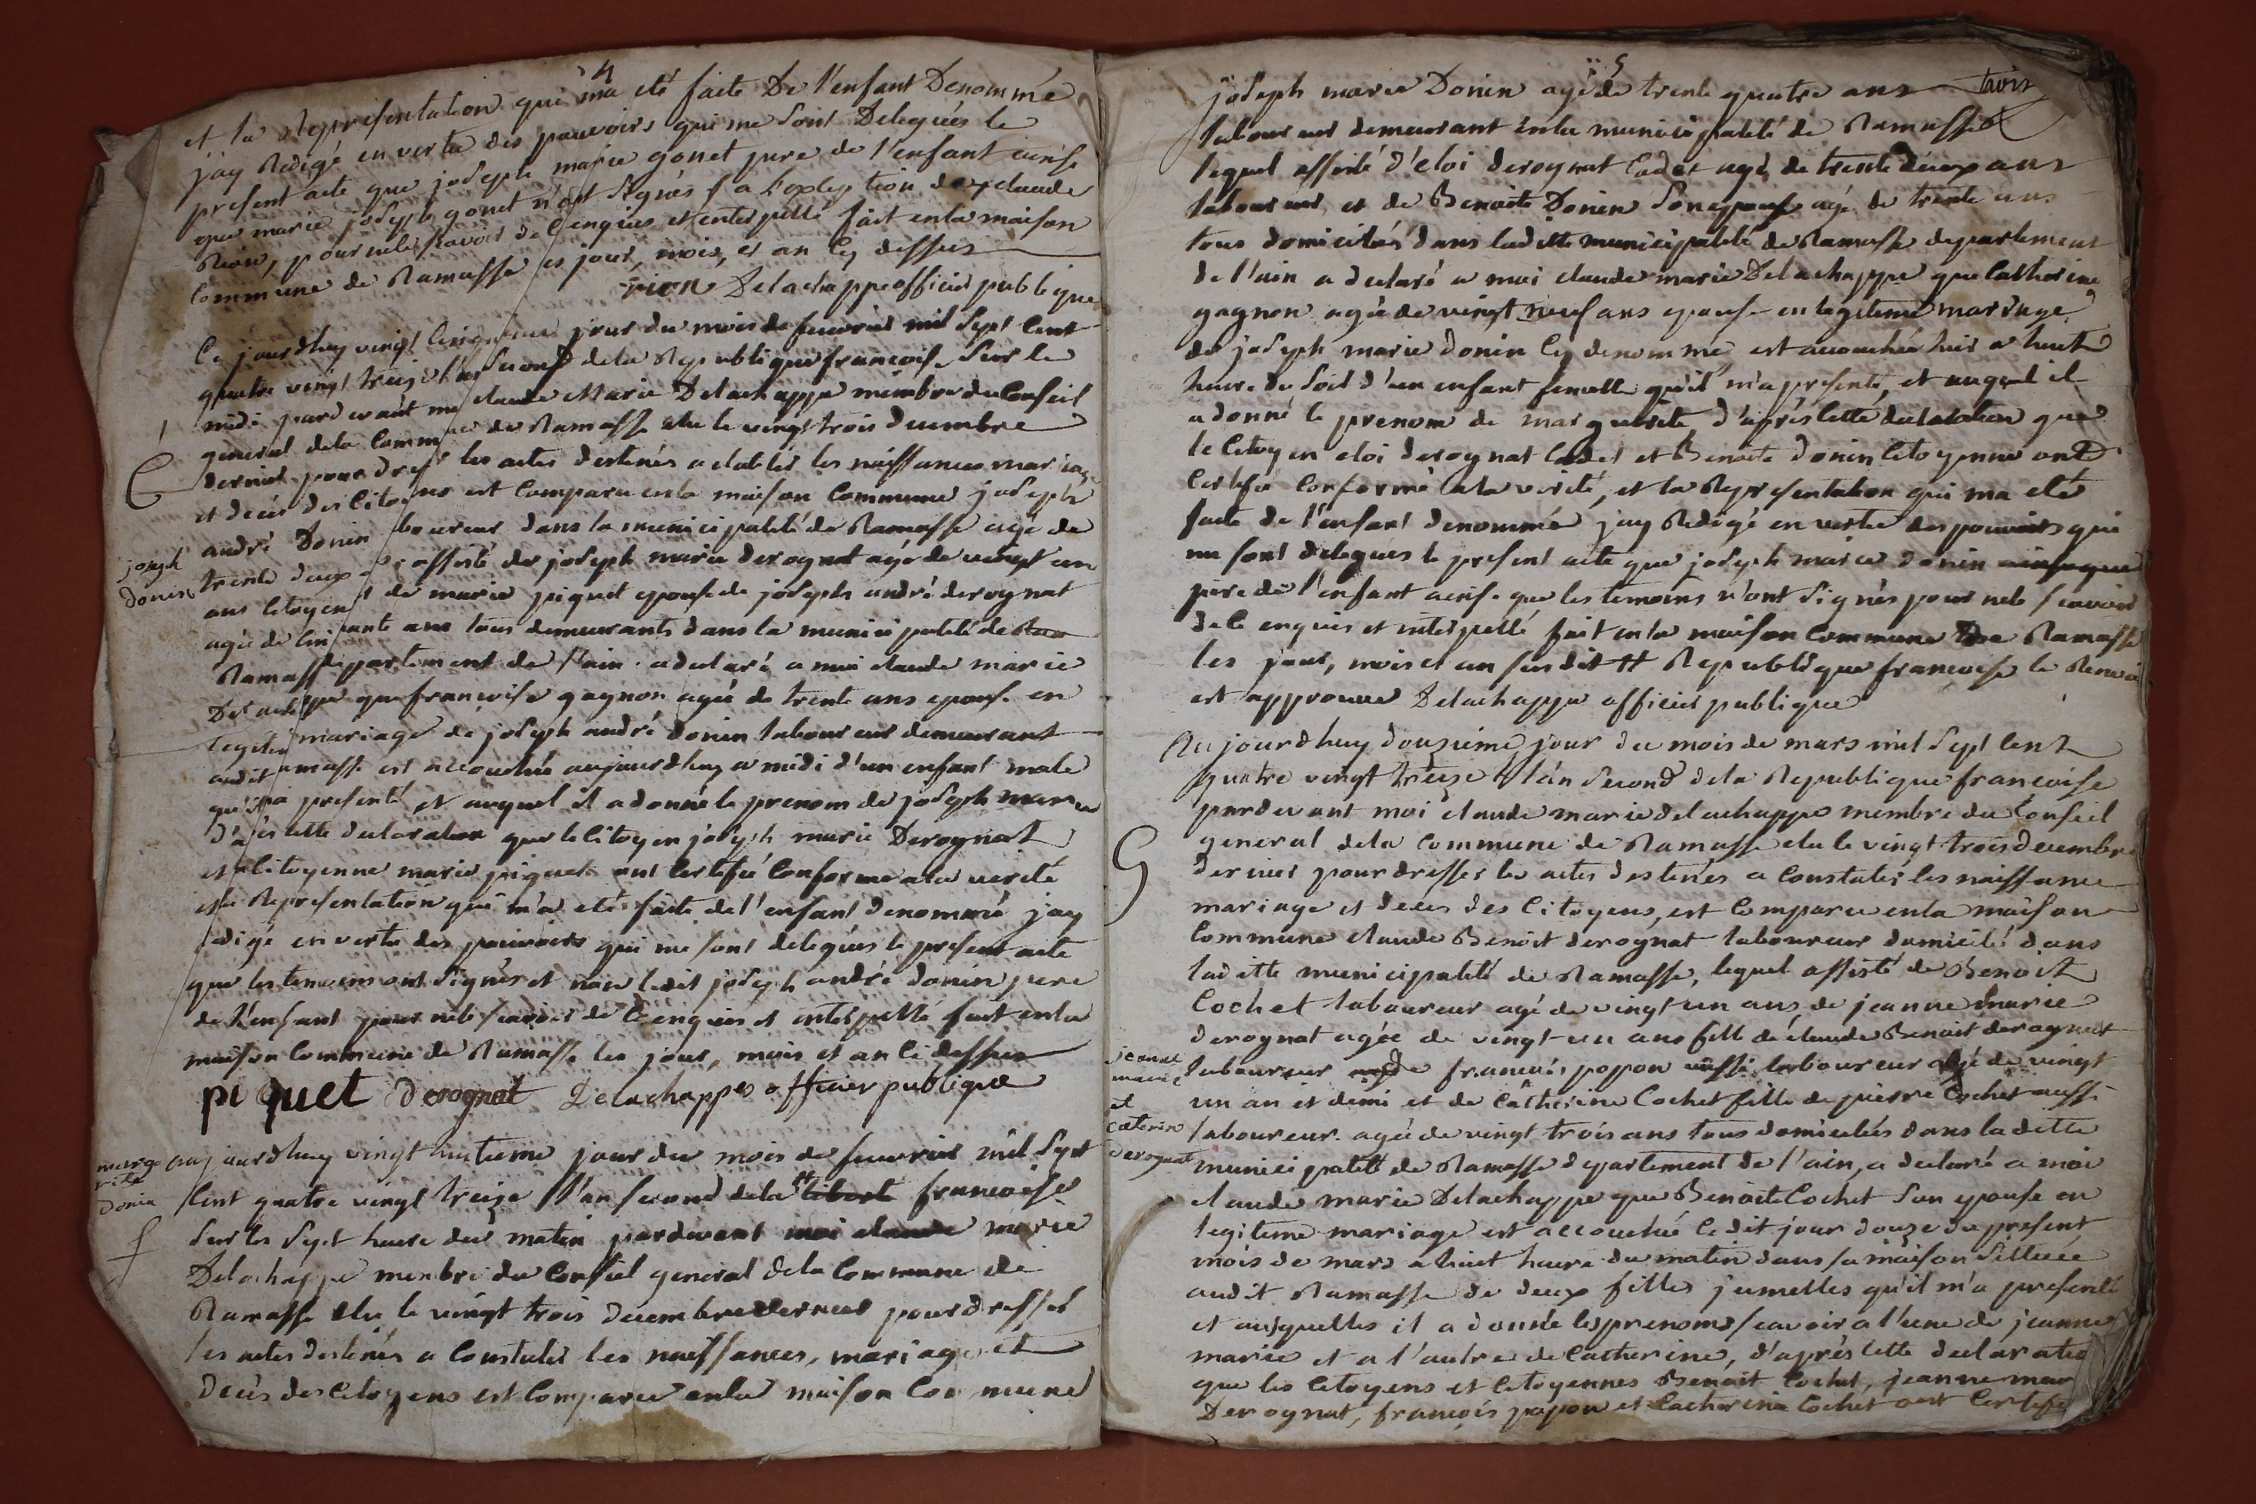 4
et la Representation qui m'a eté faite De l'enfant Denommé
j'ay Redigé en vertu des pouvoirs qui me sont Delegués le
present acte que joseph marie gonet pere de l'enfant
que marie joseph gonet n'ont signés a l'exception de claude
Rion, pour ne le scavoir de ce enquis et interpellé fait en la maison
Commune de Ramasse les jour, mois, et an cy dessus
rion Delachappe officier publique
Ce jourdhuy vingt cinquieme jour du mois de fevrier mil sept cent
quatre vingt treize l'an second de la Republique francoise, sur le
midi pardevant moi claude Marie Delachappe membre du Conseil
general de la Commune de Ramasse elu le vingt trois decembre
dernier pour dresser les actes destinés a etablir les naissances mariage
et decés des Citoyens est Comparu en la maison Commune joseph
andré Donin laboureur dans la municipalité de Ramasse agé de
trente deux ans assisté de joseph marie derognat agé de vingt un
ans Citoyen et de marie piquet epouse de joseph andré derognat
agée de cinquante ans tous demeurants dans la municipalité de
Ramasse departement de l'ain. a declaré a moi claude marie
Delachappe que francoise gagnon agée de trente ans epouse en
legitime mariage de joseph andré donin laboureur demeurant
audit Ramasse est accouchée aujourdhuy a midi d'un enfant male
qu'il m'a presenté et auquel il a donné le prenom de joseph marie
d'après cette declaration que le Citoyen joseph marie Derognat
et la Citoyenne marie piquet ont Certifié Conforme a la verité
et la Representation qui m'a eté faite de l'enfant denommé j'ay
Redigé en vertu des pouvoirs qui me sont delegués le present acte
que les temoins ont signés et non ledit joseph andré donin pere
de l'enfant pour ne le scavoir de ce enquis et interpellé fait en la
maison Commune de Ramasse les jour, mois et an ci dessus
piquet Derognat Delachappe officier publique
joseph
donin
marge
rite
donin
aujourdhuy vingt huitieme jour du mois de fevrier mil sept
Cent quatre vingt treize l'an second de la # liberté francoise
sur les sept heure du matin pardevant moi claude marie
Delachappe membre du Conseil general de la Commune de
Ramasse elu le vingt trois decembre dernier pour dresser
les actes destinés a Constater les naissances, mariage et
decès des Citoyens est Comparu en la maison Commune
5
trois
joseph marie Donin agé de trente quatre ans
laboureur demeurant en la municipalité de Ramasse
lequel assisté d'eloi derognat Cadet agé de trente deux ans
laboureur et de Benoite Donin son epouse agé de trente ans
tous domiciliés dans ladite municipalité de Ramasse departement
de l'ain a declaré a moi claude marie Delachappe que Catherine
gagnon agée de vingt neuf ans epouse en legitime mariage
de joseph marie donin cy denommé, est accouchée hier a huit
heure du soir d'un enfant femelle qu'il m'a presenté, et auquel il
a donné le prenom de marguerite, d'après cette declaration que
le Citoyen eloi derognat Cadet et Benoite donin Citoyenne ont
Certifié Conforme a la verité, et la Representation qui m'a eté
faite de l'enfant denommé j'ay Redigé en vertu des pouvoirs qui
me sont delegués le present acte que joseph marie donin
pere de l'enfant ainsi que les temoins n'ont signés pour ne le scavoir
de ce enquis et interpellé fait en la maison Commune de Ramasse
les jour, mois et an susdit # Republique francoise le Renvoi
est approuvé Delachappe officier publique
Aujourdhuy douzieme jour du mois de mars mil sept cent
quatre vingt treize l'an second de la Republique francoise
pardevant moi claude marie delachappe membre du Conseil
general de la Commune de Ramasse elu le vingt trois decembre
dernier pour dresser les actes destinés a Constater les naissance
mariage et deces des Citoyens, est Comparu en la maison
Commune claude Benoit derognat laboureur domicilié dans
ladite municipalité de Ramasse, lequel assisté de Benoit
Cochet laboureur agé de vingt un ans, de jeanne marie
derognat agée de vingt un ans fille de claude Benoit derognat
laboureur de francois popon aussi laboureur agé de vingt
un an et demi et de Catherine Cochet fille de pierre Cochet aussi
laboureur. agée de vingt trois ans tous domiciliés dans ladite
municipalité de Ramasse departement de l'ain, a declaré a moi
claude marie Delachappe que Benoite Cochet son epouse en
legitime mariage est accouchée cedit jour douze du present
mois de mars a huit heure du matin dans sa maison scituée
audit Ramasse de deux filles jumelles qu'il m'a presenté
et ausquelles il a donné les prenoms scavoir a l'une de jeanne
marie et a l'autre de Catherine, d'après cette declaration
que les Citoyens et Citoyennes Benoit Cochet, jeanne marie
Derognat, francois popon et Catherine Cochet ont Certifié
jeanne
marie
et
Caterine
derognat